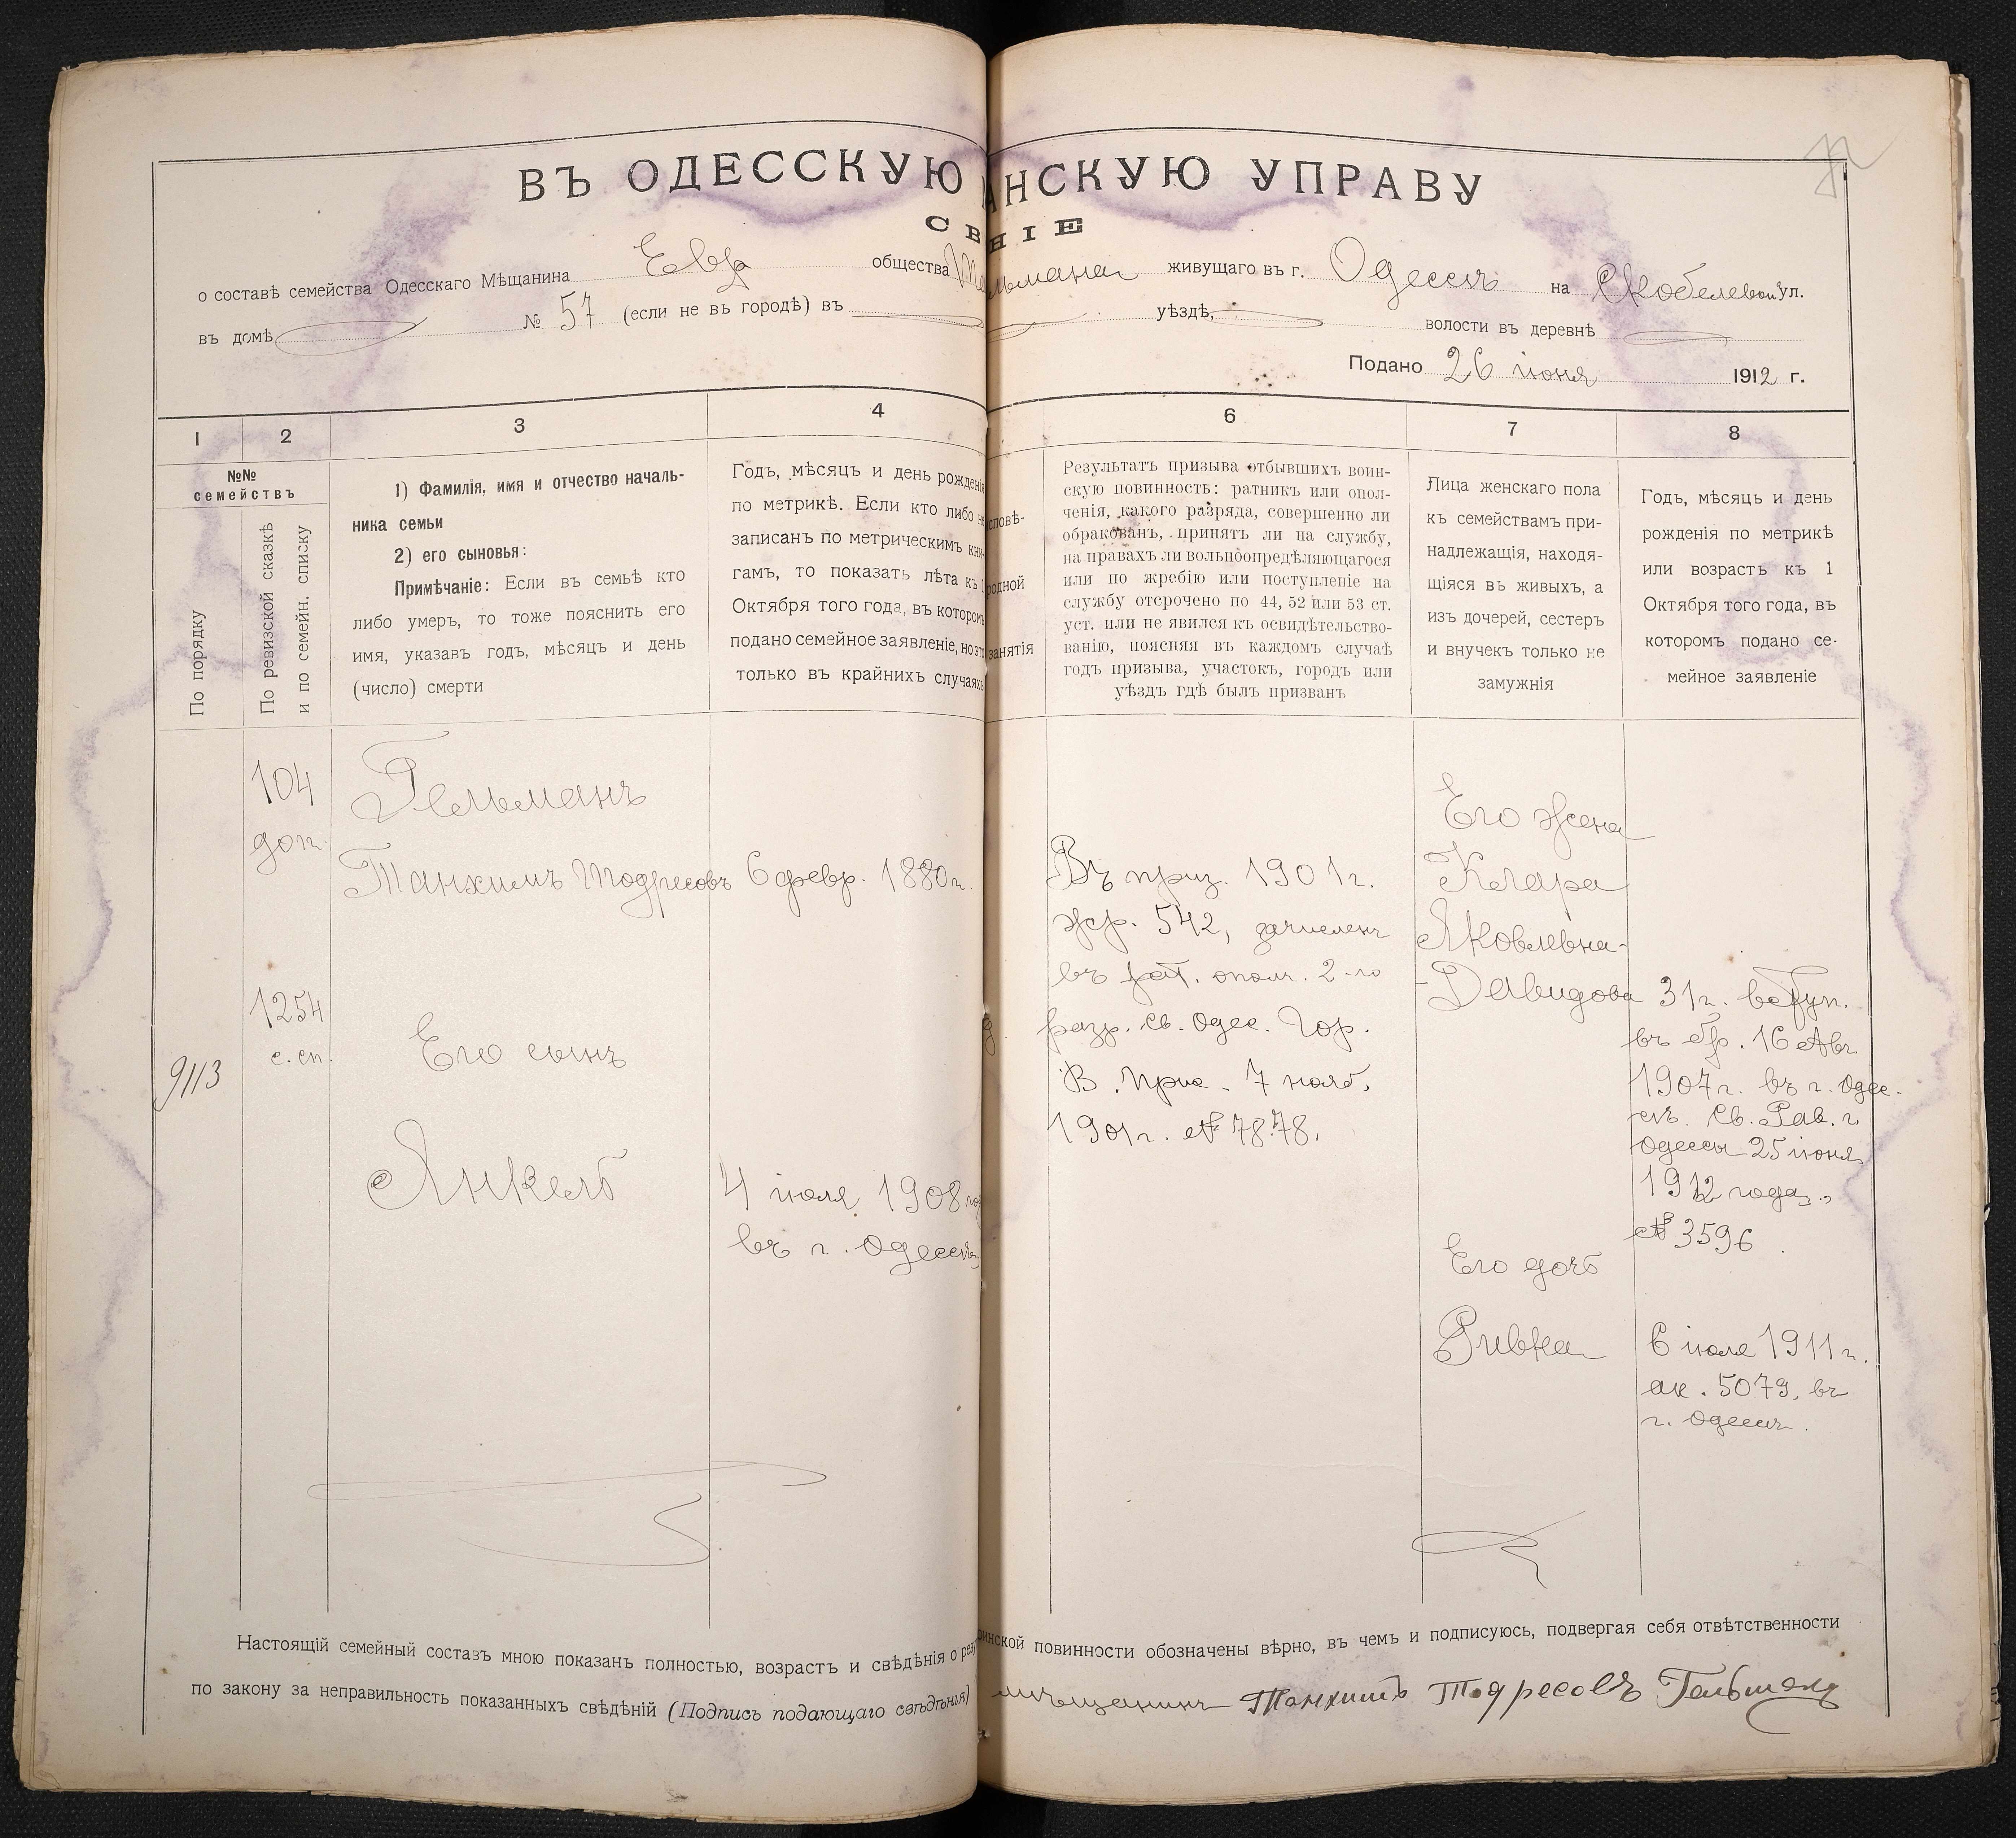 ВЪ ОДЕССКУЮ
НСКУЮ УПРАВУ
СВ
НІЕ
о составѣ семейства Одесскаго Мѣщанина Евр общества
льмана живущаго въ г. Одессѣ на Скобелевой ул.
въ домѣ № 57 (если не въ городѣ) въ
уѣздѣ, волости въ деревнѣ
Подано 26 іюня 1912 г.
1
2
3
4
6
7
8
№№
семействъ
По порядку
По ревизской сказкѣ
и по семейн. списку
1) Фамилія, имя и отчество началь-
ника семьи
2) его сыновья:
Примѣчаніе: Если въ семьѣ кто
либо умеръ, то тоже пояснить его
имя, указавъ годъ, мѣсяцъ и день
(число) смерти
Годъ, мѣсяцъ и день рожденія
по метрикѣ. Если кто либо не
записанъ по метрическимъ кни-
гамъ, то показать лѣта къ 1
Октября того года, въ которомъ
подано семейное заявленіе, но это
только въ крайнихъ случаяхъ
сповѣ-
родной
занятія
Результатъ призыва отбывшихъ воин-
скую повинность: ратникъ или опол-
ченія, какого разряда, совершенно ли
обракованъ, принятъ ли на службу,
на правахъ ли вольноопредѣляющагося
или по жребію или поступленіе на
службу отсрочено по 44, 52 или 53 ст.
уст. или не явился къ освидѣтельство-
ванію, поясняя въ каждомъ случаѣ
годъ призыва, участокъ, городъ или
уѣздъ гдѣ былъ призванъ
Лица женскаго пола
къ семействамъ при-
надлежащія, находя-
щіяся въ живыхъ, а
изъ дочерей, сестеръ
и внучекъ только не
замужнія
Годъ, мѣсяцъ и день
рожденія по метрикѣ
или возрастъ къ 1
Октября того года, въ
которомъ подано се-
мейное заявленіе
9113
104
доп.
1254
с. сп.
Гельманъ
Танхимъ Тодресовъ
Его сынъ
Янкель
6 февр. 1880 г.
4 іюля 1908 год
въ г. Одессѣ
Въ приз. 1901 г.
жр. 542, зачисленъ
въ рат. ополч. 2-го
разр. Св. Одес. Гор.
В. Прис. 7 нояб.
1901 г. № 7878.
Его жена
Клара
Яковлевна-
-Давидова
Его дочь
Ривка
31 г. вступ.
въ бр. 16 Авг.
1907 г. въ г. Одес-
сѣ. Св. Рав. г.
Одессы 25 іюня
1912 года,
№ 3596
6 іюля 1911 г.
ак. 5079, въ
г. Одессѣ.
Настоящій семейный составъ мною показанъ полностью, возрастъ и свѣдѣнія о рез
инской повинности обозначены вѣрно, въ чемъ и подписуюсь, подвергая себя отвѣтственности
по закону за неправильность показанныхъ свѣдѣній (Подпись подающаго свѣдѣнія)
мѣщанинъ Танхимъ Тодресовъ Гельманъ